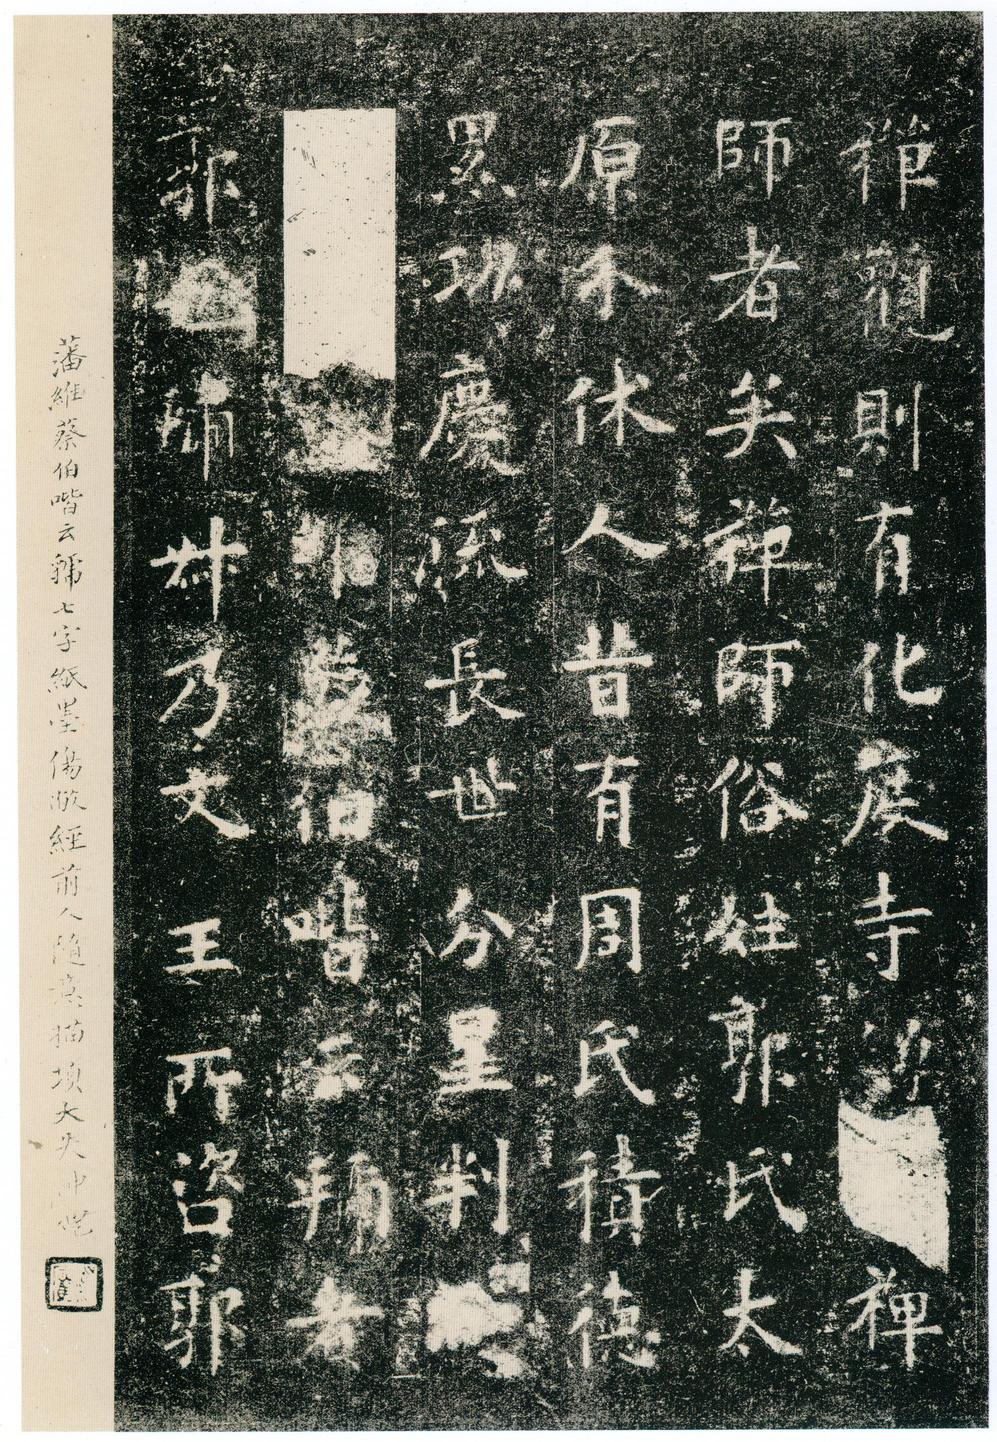 禅觀則有化度寺 禅
師者矣禅師俗姓郭氏太
原木休人昔有周氏積德
累功慶流長世分星判
蔡伯喈云䝞者
郭 乃文王所咨郭
藩維蔡伯喈云䝞七字紙墨傷敝經前人隨意描填大失神